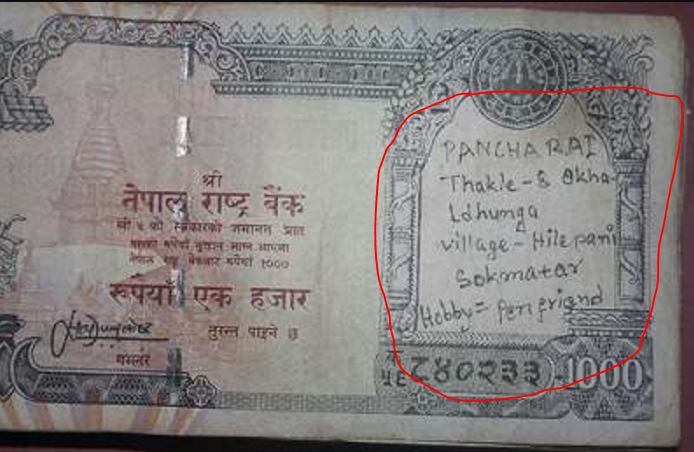 श्री
नेपाल राष्ट्र बैंक
श्री ५ को सरकारको जमानत प्राप्त
रुपैयाँ एक हजार
तुरुन्त पाइने छ
गभर्नर
PANCHA RAI
Thakle - 8 Okha-
Ldhunga
village - Hilepani
Sokmatar
Hobby = Penfriend
८४०२३३
1000